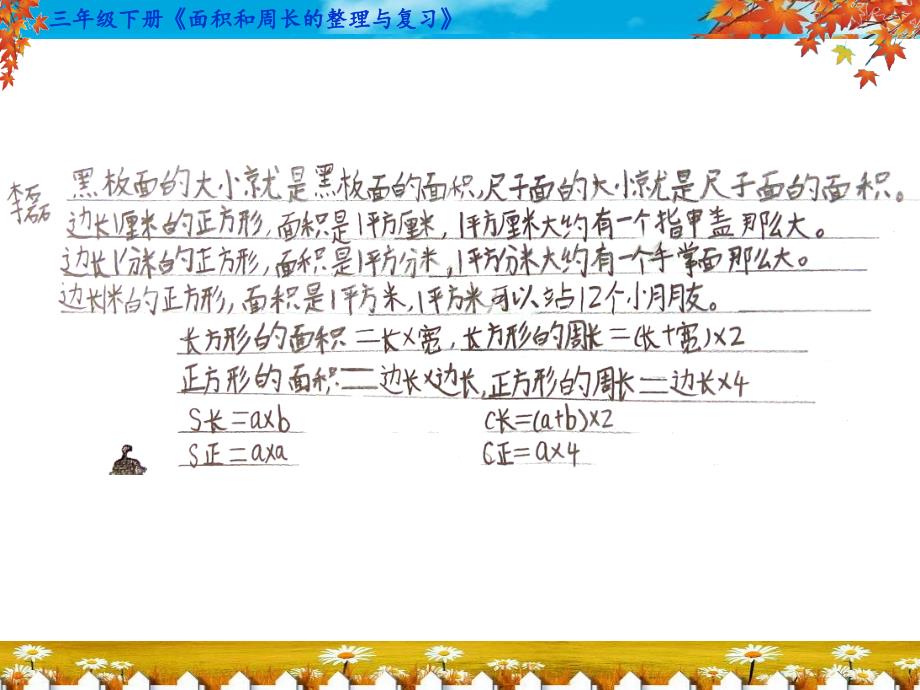 三年级下册《面积和周长的整理与复习》
李磊
黑板面的大小就是黑板面的面积,尺子面的大小就是尺子面的面积。
边长1厘米的正方形,面积是1平方厘米,1平方厘米大约有一个指甲盖那么大。
边长1分米的正方形,面积是1平方分米,1平方分米大约有一个手掌面那么大。
边长1米的正方形,面积是1平方米,1平方米可以站12个小朋友。
长方形的面积=长×宽,长方形的周长=(长+宽)×2
正方形的面积=边长×边长,正方形的周长=边长×4
S长=a×b C长=(a+b)×2
S正=a×a C正=a×4